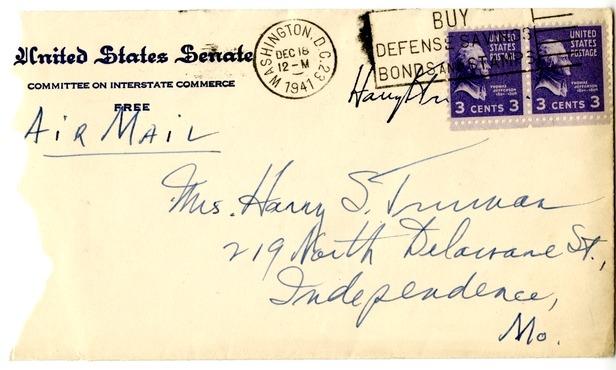 United States Senate
COMMITTEE ON INTERSTATE COMMERCE
FREE
AIR MAIL
WASHINGTON, D.C. 23
DEC 18
12-M
1941
BUY
DEFENSE SAVINGS
BONDS AND STAMPS
UNITED
STATES
POSTAGE
THOMAS
JEFFERSON
3 CENTS 3
UNITED
STATES
POSTAGE
THOMAS
JEFFERSON
3 CENTS 3
Harry
Mrs. Harry S. Truman
219 North Delaware St.,
Independence,
Mo.